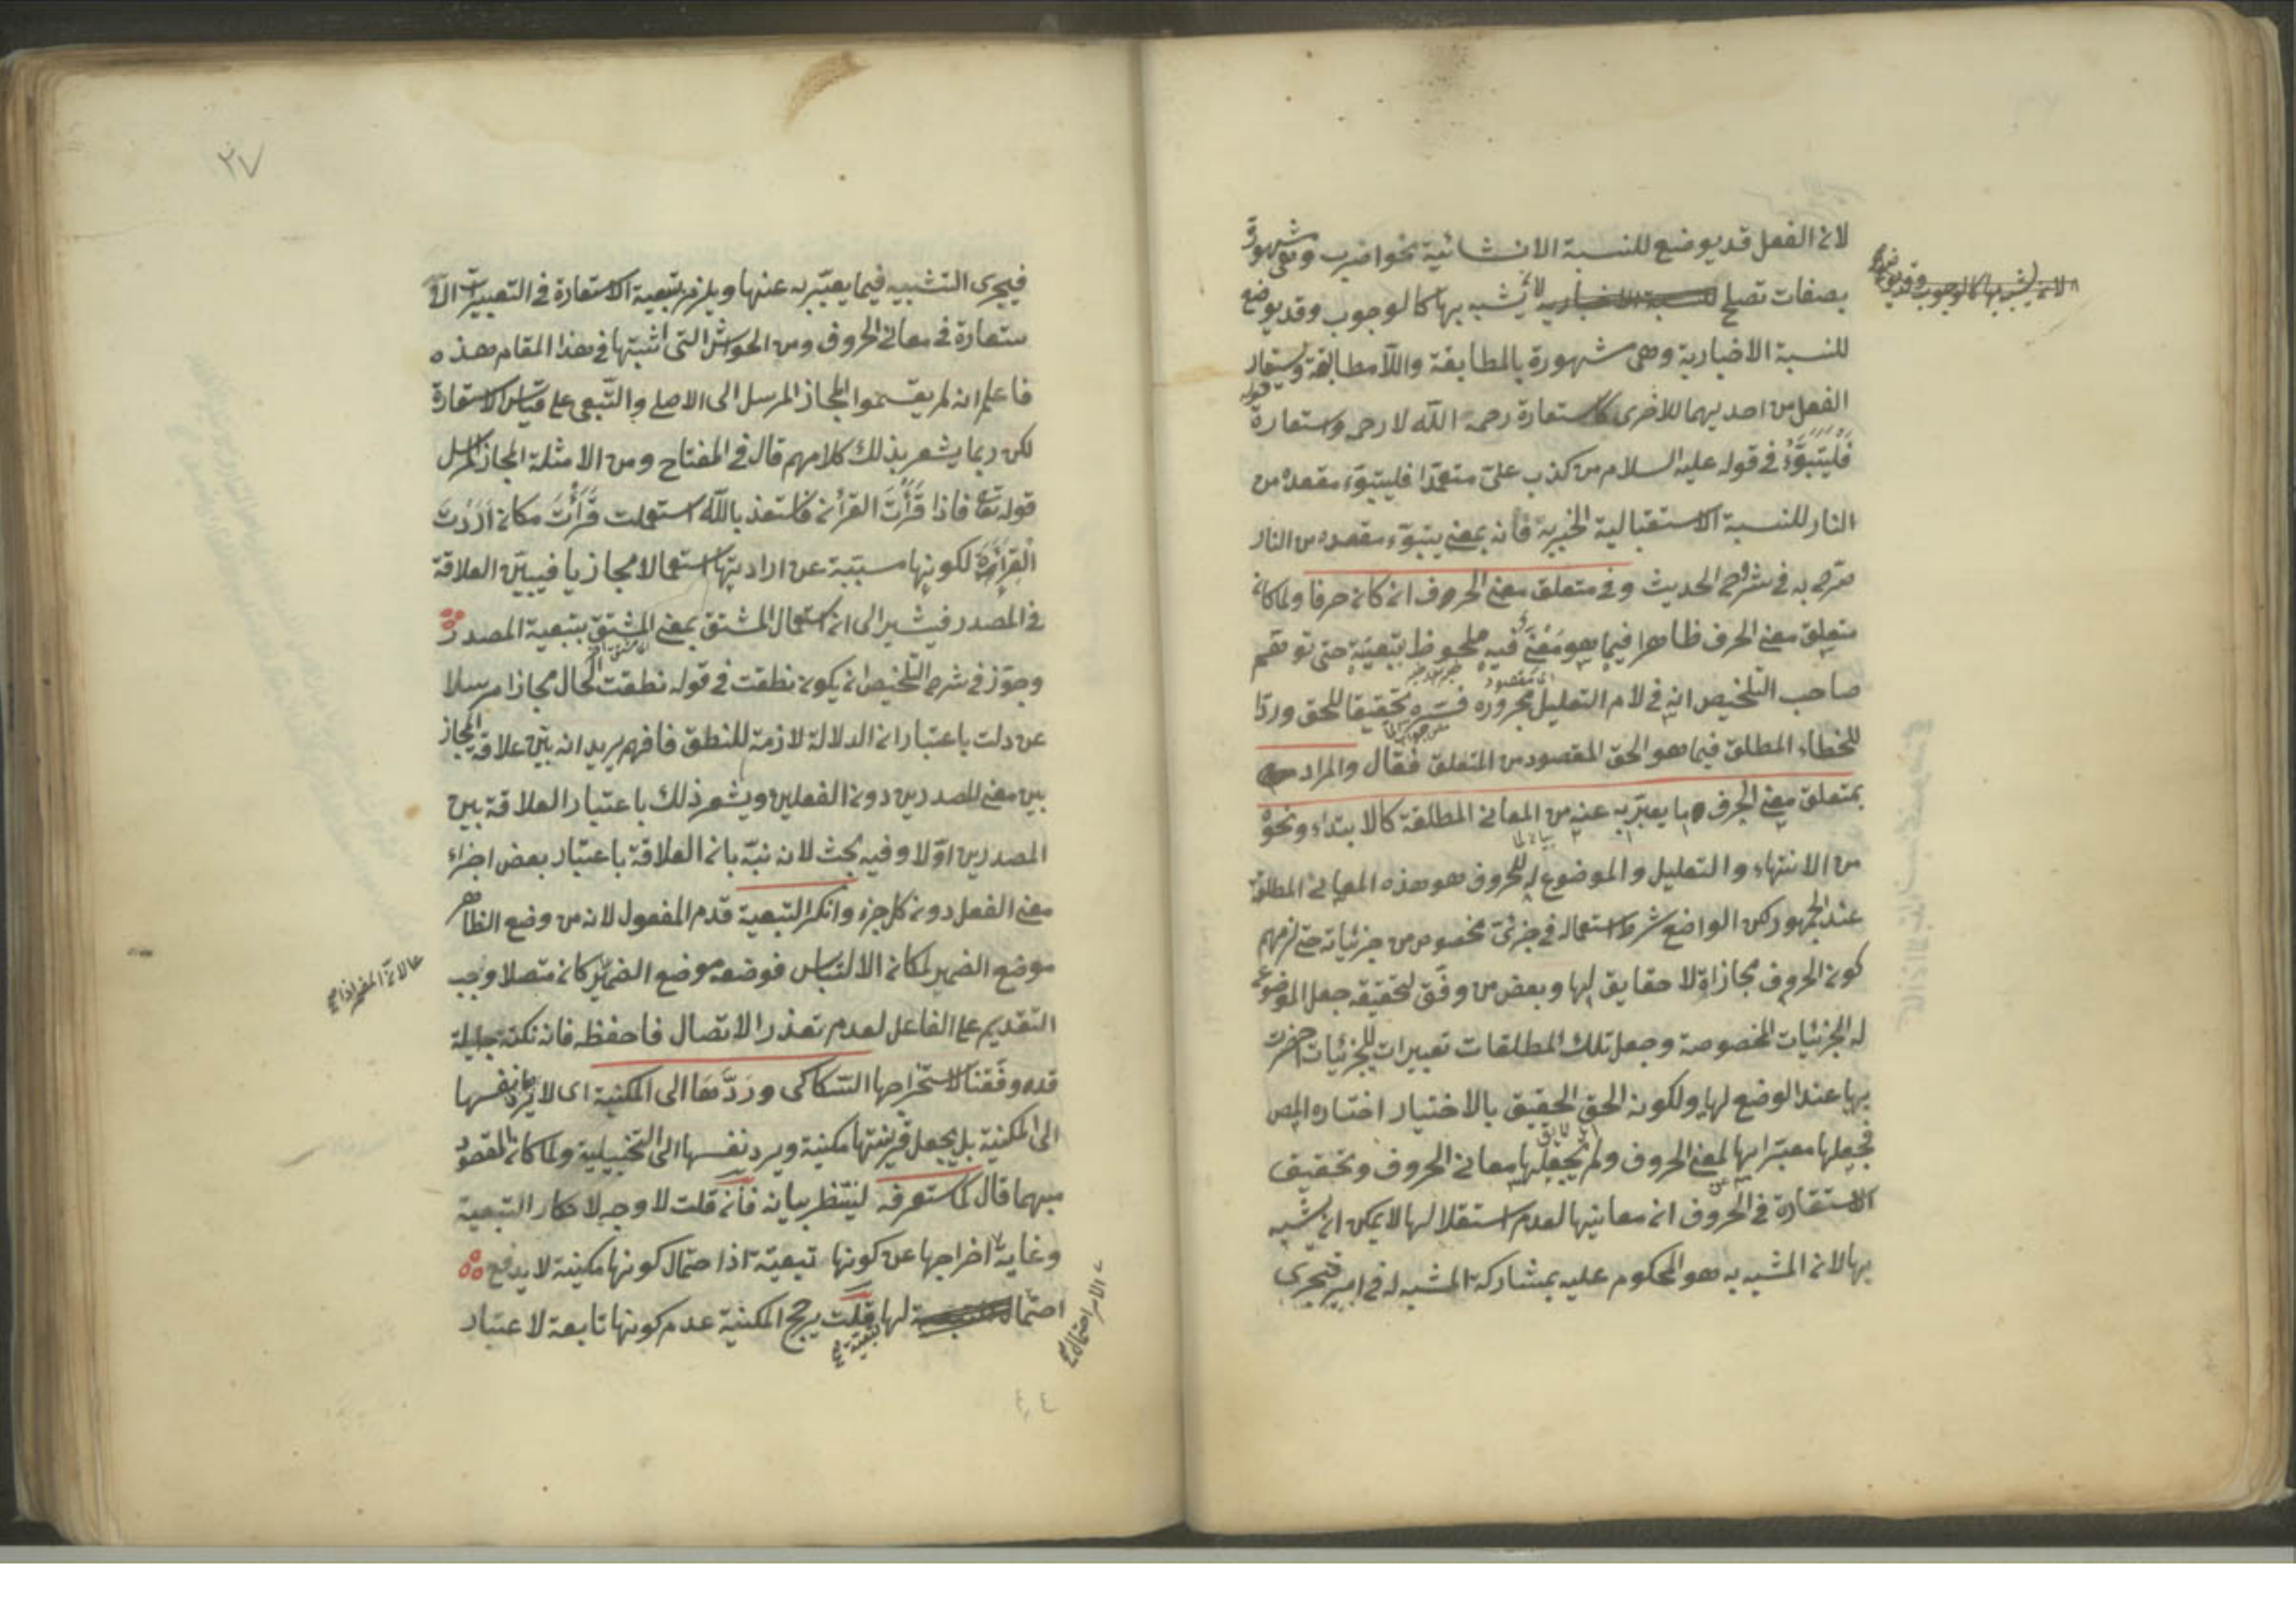 لان الفعل قد يوضع للنسبة الانشائية نحو اضرب وهى مشهورة
بصفات تصلح لان يشبه بها كالوجوب وقد يوضع
للنسبة الاخبارية وهى مشهورة بالمطابقة واللامطابقة ويستعار
الفعل من احديهما للاخرى كاستعارة رحمه الله لارحم واستعارة قوله
فليتبوّء فى قوله عليه السلام من كذب علىّ متعمّدا فليتبوّء مقعده من
النار للنسبة الاستقبالية الخبرية فانه بمعنى يتبوّء مقعده من النار
صرّح به فى شرح الحديث وفى متعلق معنى الحروف ان كان حرفا ولما كان
متعلق معنى الحرف ظاهرا فيما هو معنى فيه ملحوظ بتبعيته حتى توهم
صاحب التلخيص انه فى لام التعليل مجروره فسّره تحقيقا للحق وردّا
للخطاء المطلق فيما هو الحق المقصود من المتعلق فقال والمراد
بمتعلق معنى الحرف ما يعبّر به عنه من المعانى المطلقة كالابتداء ونحوه
من الانتهاء والتعليل والموضوع له للحروف هو هذه المعانى المطلقة
عند الجمهور لكن الواضع شرط استعماله فى جزئى مخصوص من جزئياته حتى لزمهم
كون الحروف مجازات لا حقايق لها وبعض من وفّق لتحقيقه جعل الموضوع
له الجزئيات المخصوصة وجعل تلك المطلقات تعبيرات للجزئيات احضرت
بها عند الوضع لها ولكونه الحق الحقيق بالاختيار اختاره المص
فجعلها معبّرا بها لمعنى الحروف ولم يجعلها معانى الحروف وتحقيق
الاستعارة فى الحروف ان معانيها لعدم استقلالها لا يمكن ان يشبه
بها لان المشبه به هو المحكوم عليه بمشاركة المشبه له فى امر فيجرى
٢٧
فيجرى التشبيه فيما يعبّر به عنها ويلزم بتبعية الاستعارة فى التعبيرات الا
ستعارة فى معانى الحروف ومن الحواشى التى اثبتها فى هذا المقام هذه
فاعلم انه لم يقسموا المجاز المرسل الى الاصلى والتّبعى على قياس الاستعارة
لكن ربما يشعر بذلك كلامهم قال فى المفتاح ومن الامثلة المجاز المرسل
قوله تعالى فاذا قرأت القرآن فاستعذ بالله استعملت قرأت مكان اردت
القراءة لكونها مسببة عن ارادتها استعمالا مجازيا فيبيّن العلاقة
فى المصدر فيشير الى ان استعمال المشتق بمعنى المشتق بتبعية المصدر
وجوّز فى شرح التلخيص ان يكون نطقت فى قوله نطقت الحال مجازا مرسلا
عن دلت باعتبار ان الدلالة لازمة للنطق فافهم يريد انه بيّن علاقة المجاز
بين معنى المصدرين دون الفعلين ويشعر ذلك باعتبار العلاقة بين
المصدرين اوّلا وفيه بحث لانه نبّه بان العلاقة باعتبار بعض اجزاء
معنى الفعل دون كل جزء وانكر التبعية قدم المفعول لانه من وضع الظاهر
موضع الضمير لمكان الالتباس فوضعه موضع الضمير كان متصلا وجب
التقديم على الفاعل لعدم تعذر الاتصال فاحفظه فانه نكتة جليلة
قد وفّقنا لاستخراجها السّكاكى وردّها الى المكنية اى لا يردّ نفسها
الى المكنية بل يجعل قرينتها مكنية ويرد نفسها الى التخييلية ولما كان المقصود
مبهما قال كما ستعرفه لينتظر بيانه فان قلت لا وجه لانكار التبعية
وغاية اخراجها عن كونها تبعيّة اذ احتمال كونها مكنية لا يدفع
احتمال لها قلت يرجح المكنية عدم كونها تابعة لاعتبار
تبعية صح